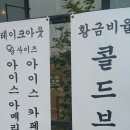 테이크아웃
사이즈
아이스아메리
아이스카페
황금비율
콜드브